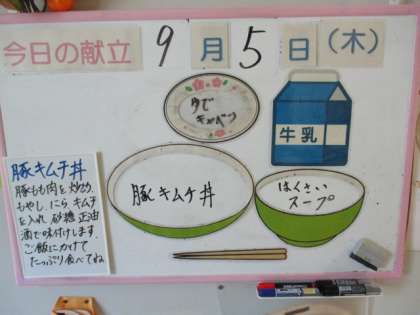 今日の献立 9月5日(木)
ゆで
キャベツ
牛乳
豚キムチ丼
はくさい
スープ
豚キムチ丼
豚もも肉を炒め
もやし、にら キムチ
を入れ 砂糖 正油
酒で味付けします。
ご飯にかけて
たっぷり食べてね